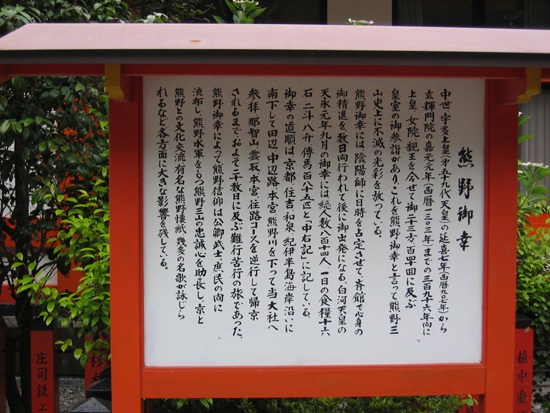 熊野御幸
中世、宇多上皇(第五十九代天皇)の延喜七年(西暦九〇七年)から
玄輝門院の嘉元元年(西暦一三〇三年)までの三百九十六年間に
上皇、女院、親王を合せて御二十三方・百四回に及ぶ
皇室の御参詣があり、これを熊野御幸と言って熊野三
山史上に不滅の光彩を放っている。
熊野御幸には、陰陽師に日時を占定させて、斉館で心身の
御精進を数日間行われて後に御出発になる。白河天皇の
天永元年九月の御幸には総人数八百十四人、一日の食糧十六
石二斗八升、傳馬百八十五匹と「中右記」に記している。
御幸の道順は京都、住吉、和泉、紀伊半島海岸沿いに
南下して田辺、中辺路、本宮、熊野川を下って当大社へ
参拝、那智山、雲取、本宮、往路コースを逆行して帰京
されるまで、およそ二十数日に及ぶ難行苦行の旅であった。
熊野御幸によって熊野信仰は公卿、武士、庶民の間に
流布し、熊野水軍をもつ熊野三山の忠誠心を助長し、京と
熊野との文化交流、有名な熊野懐紙、幾多の名歌が詠じら
れるなど各方面に大きな影響を残している。
庄司鉄工
植中